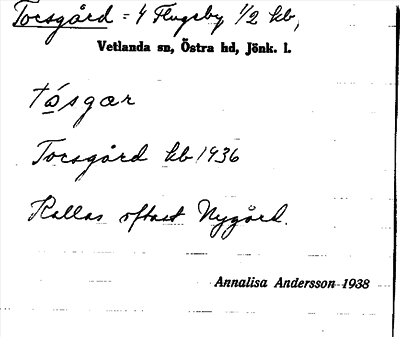 Torsgård = 4 Flugeby 1/2 kb,
Vetlanda sn, Östra hd, Jönk. l.
tåsgær
Torsgård kb 1936
Kallas oftast Nygård.
Annalisa Andersson 1938